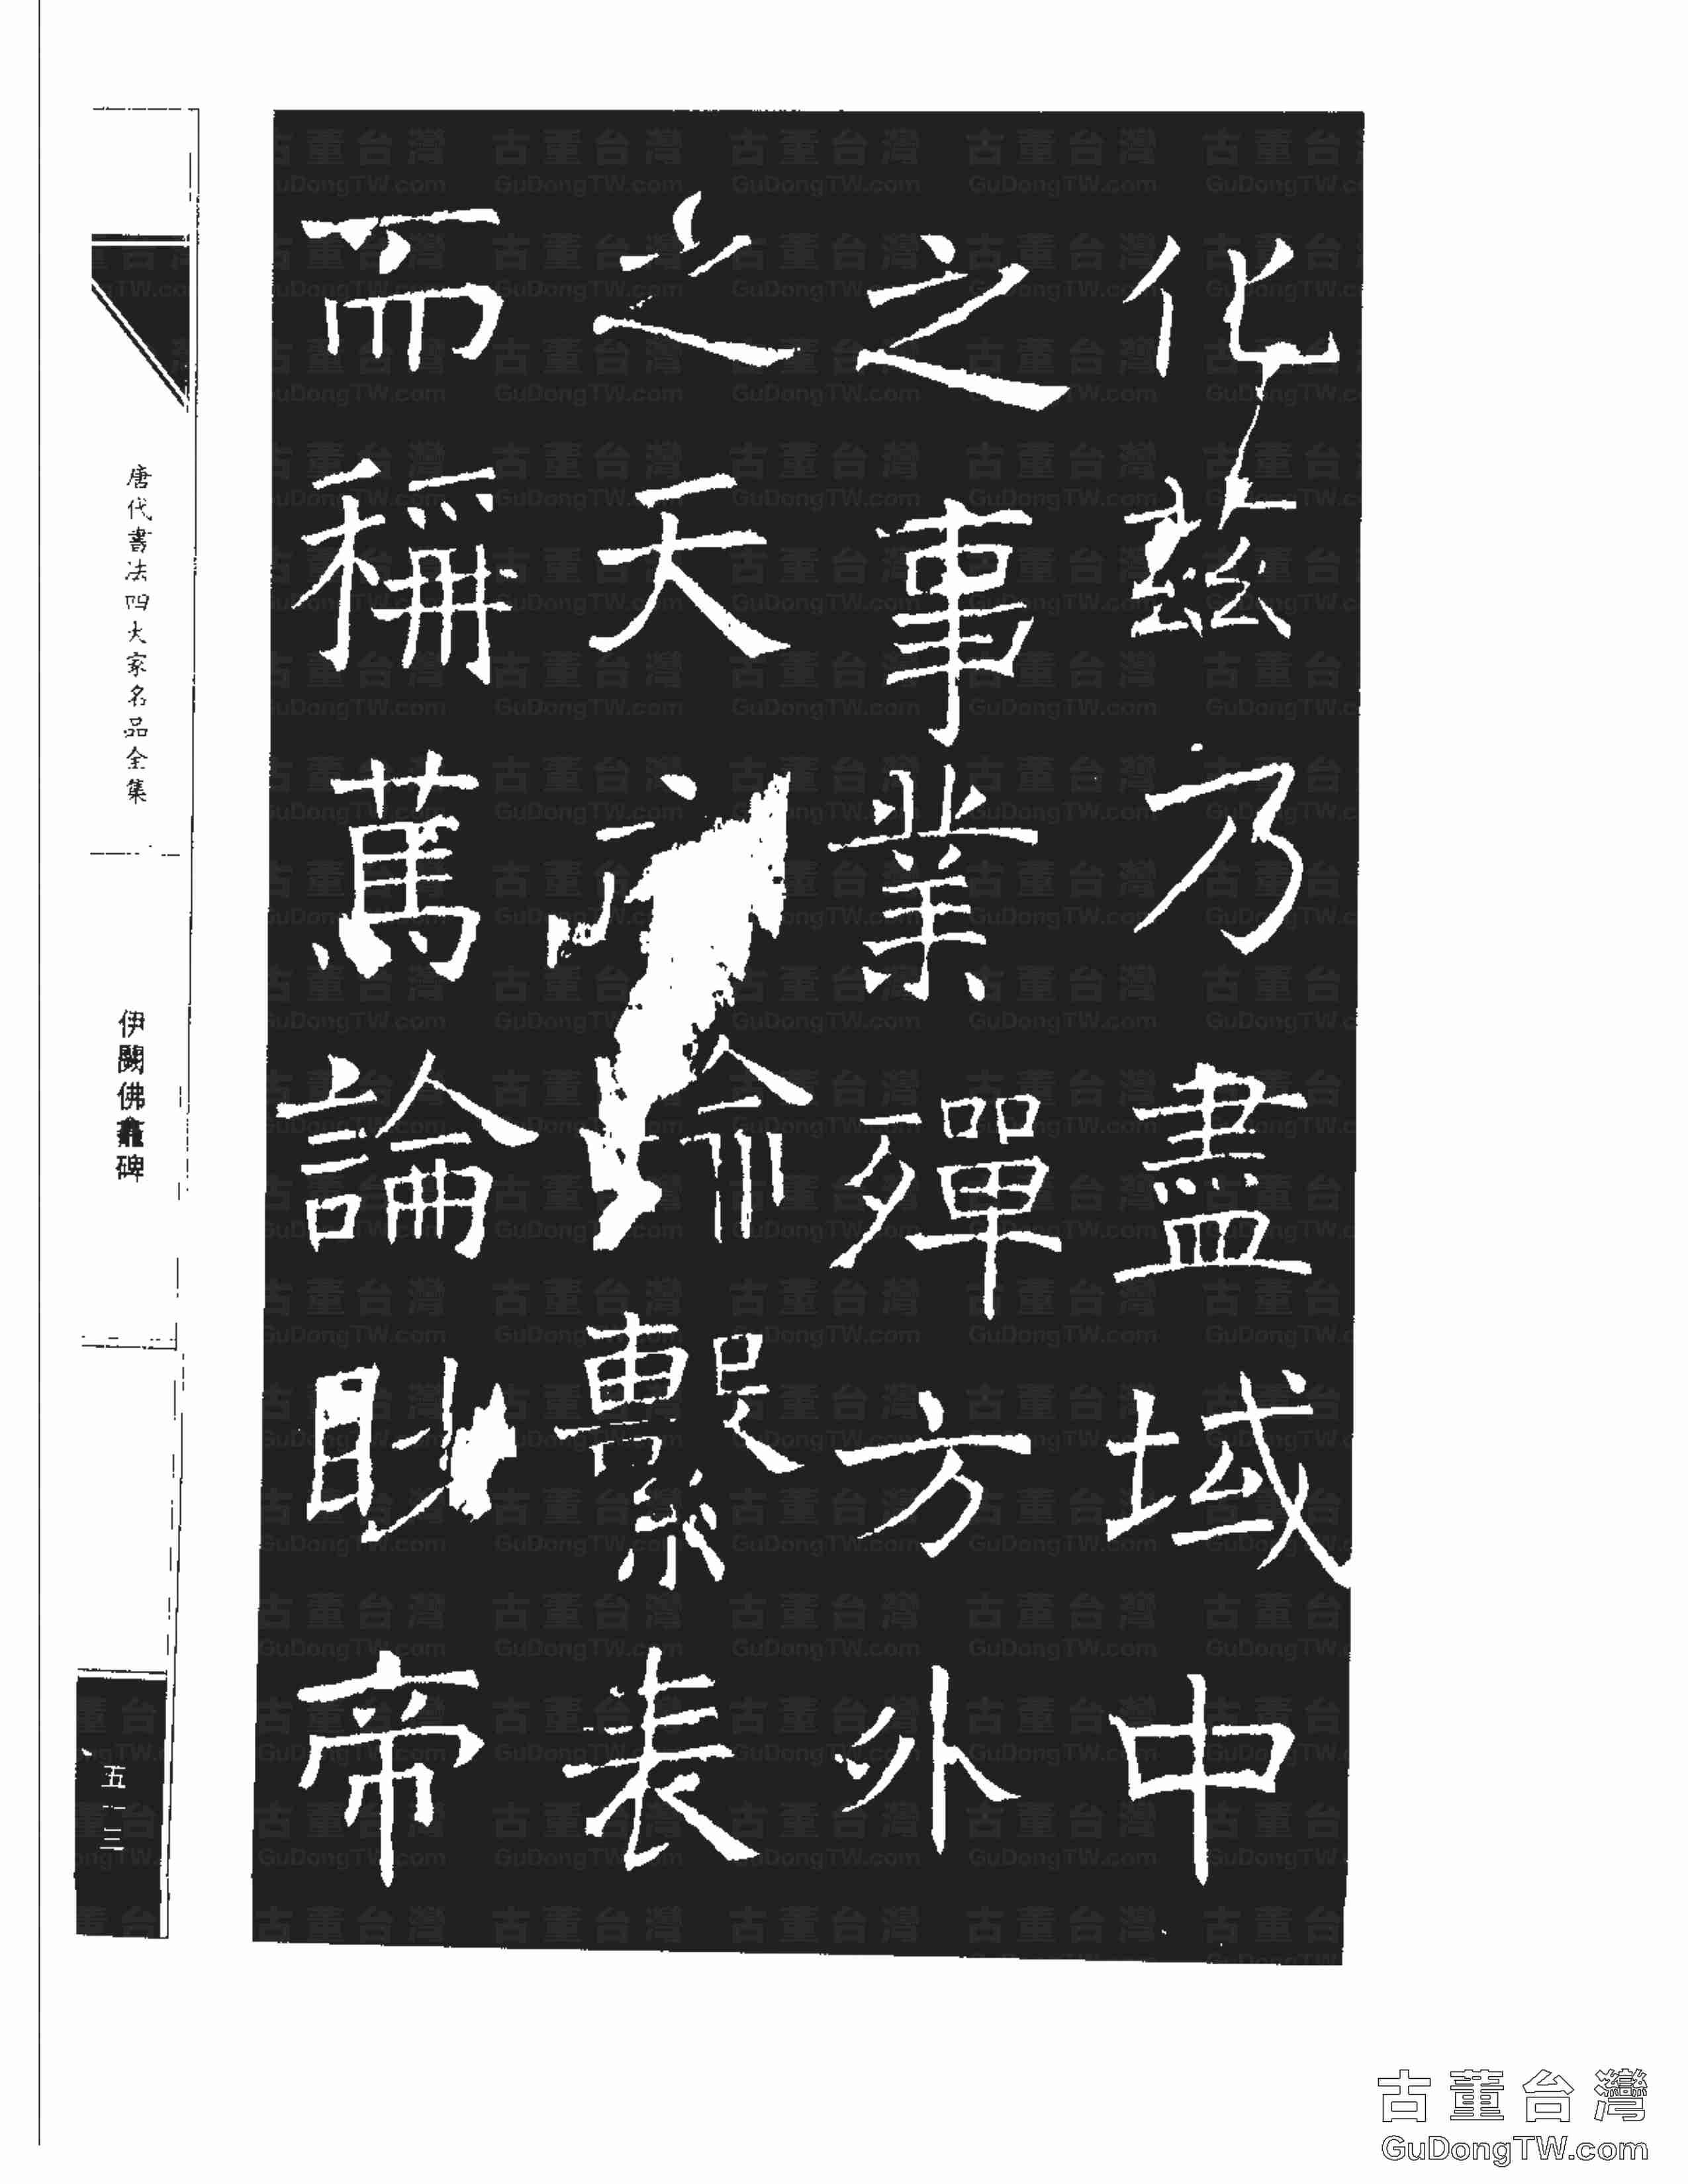 化茲乃盡域中
之事業殫方外
之天繫表
而稱萬論眇帝
唐代書法四大家名品全集
伊闕佛龕碑
五三
古董台灣
GuDongTW.com